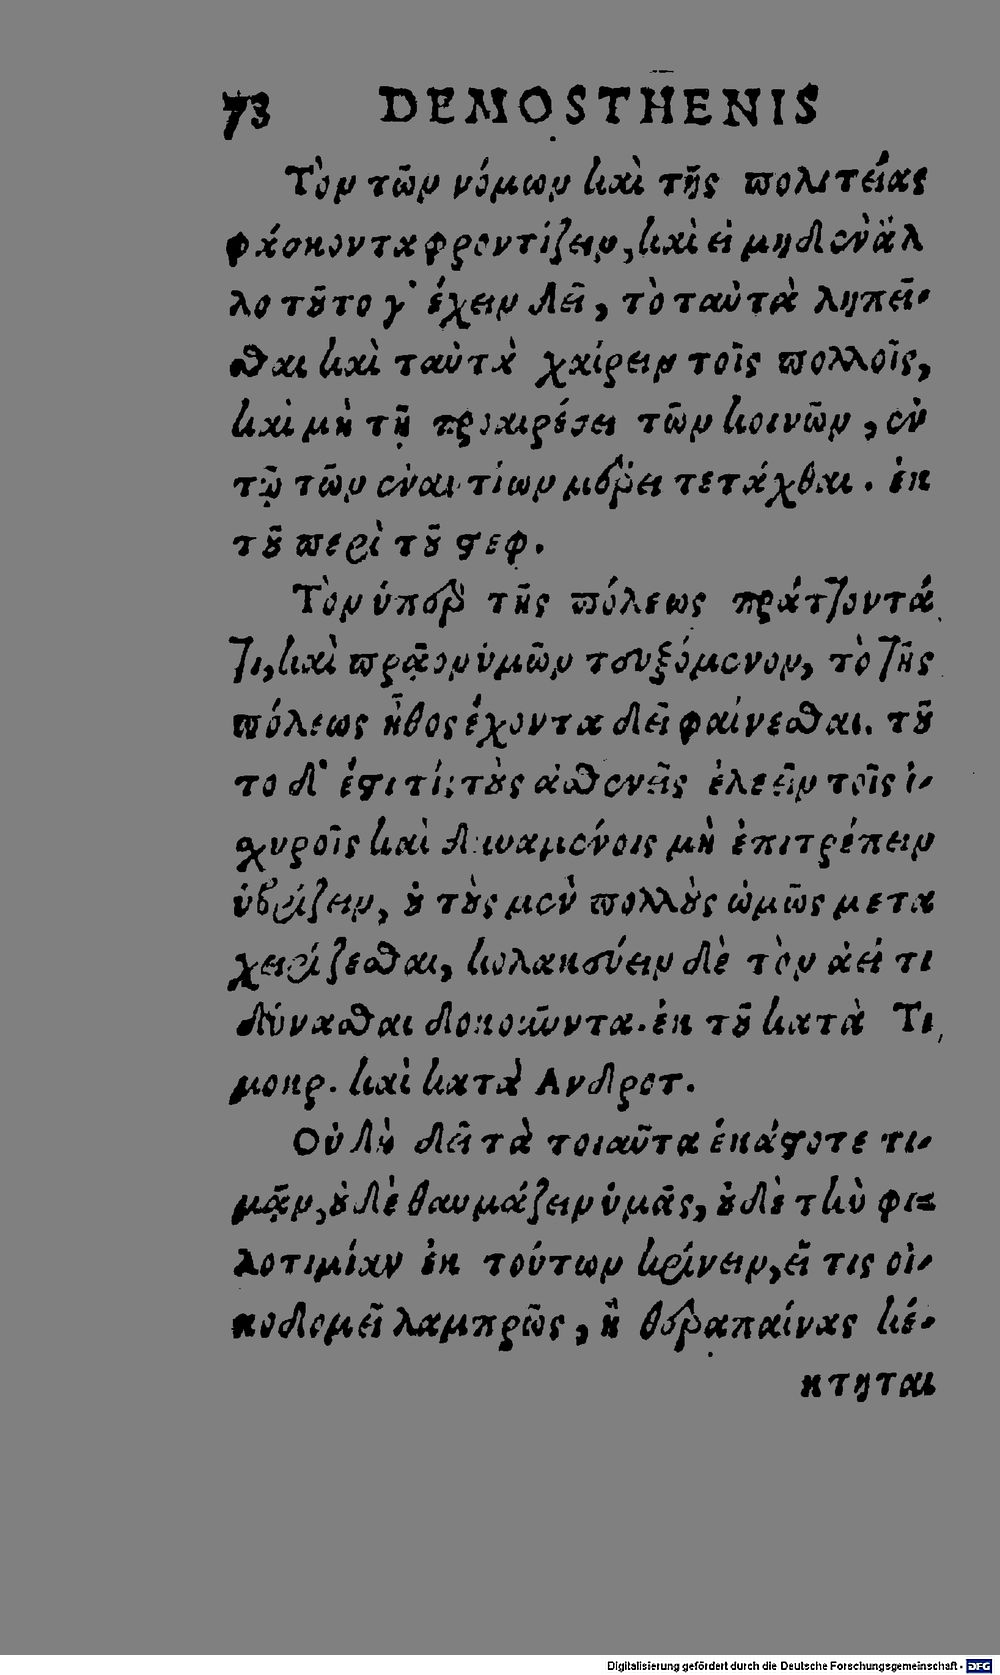 73 DEMOSTHENIS
Τὸν τῶν νόμων καὶ τῆς πολιτείας
φάσκοντα φροντίζειν, καὶ εἰ μηδὲν ἄλ
λο τοῦτό γ᾽ ἔχειν δεῖ, τὸ ταὐτὰ λυπεῖ-
σθαι καὶ ταὐτὰ χαίρειν τοῖς πολλοῖς,
καὶ μὴ τῇ προαιρέσει τῶν κοινῶν, ἐν
τῷ τῶν ἐναντίων μέρει τετάχθαι. ἐκ
τοῦ περὶ τοῦ στεφ.
Τὸν ὑπὲρ τῆς πόλεως πράττοντά
τι, καὶ πρᾷον ὑμῶν τευξόμενον, τὸ τῆς
πόλεως ἦθος ἔχοντα δεῖ φαίνεσθαι. τοῦ
το δ᾽ ἔστι τί; τοὺς ἀσθενεῖς ἐλεεῖν τοῖς ἰ-
σχυροῖς καὶ δυναμένοις μὴ ἐπιτρέπειν
ὑβρίζειν, οὐ τοὺς μὲν πολλοὺς ὠμῶς μετα
χειρίζεσθαι, κολακεύειν δὲ τὸν ἀεί τι
δύνασθαι δοκοῦντα. ἐκ τοῦ κατὰ Τι
μοκρ. καὶ κατὰ Ανδροτ.
Οὐ δὴ δεῖ τὰ τοιαῦτα ἑκάστοτε τι-
μᾷν, οὐδὲ θαυμάζειν ὑμᾶς, οὐδὲ τὴν φι-
λοτιμίαν ἐκ τούτων κρίνειν, εἴ τις οἰ-
κοδομεῖ λαμπρῶς, ἢ θεραπαίνας κέ-
κτηται
Digitalisierung gefördert durch die Deutsche Forschungsgemeinschaft - DFG